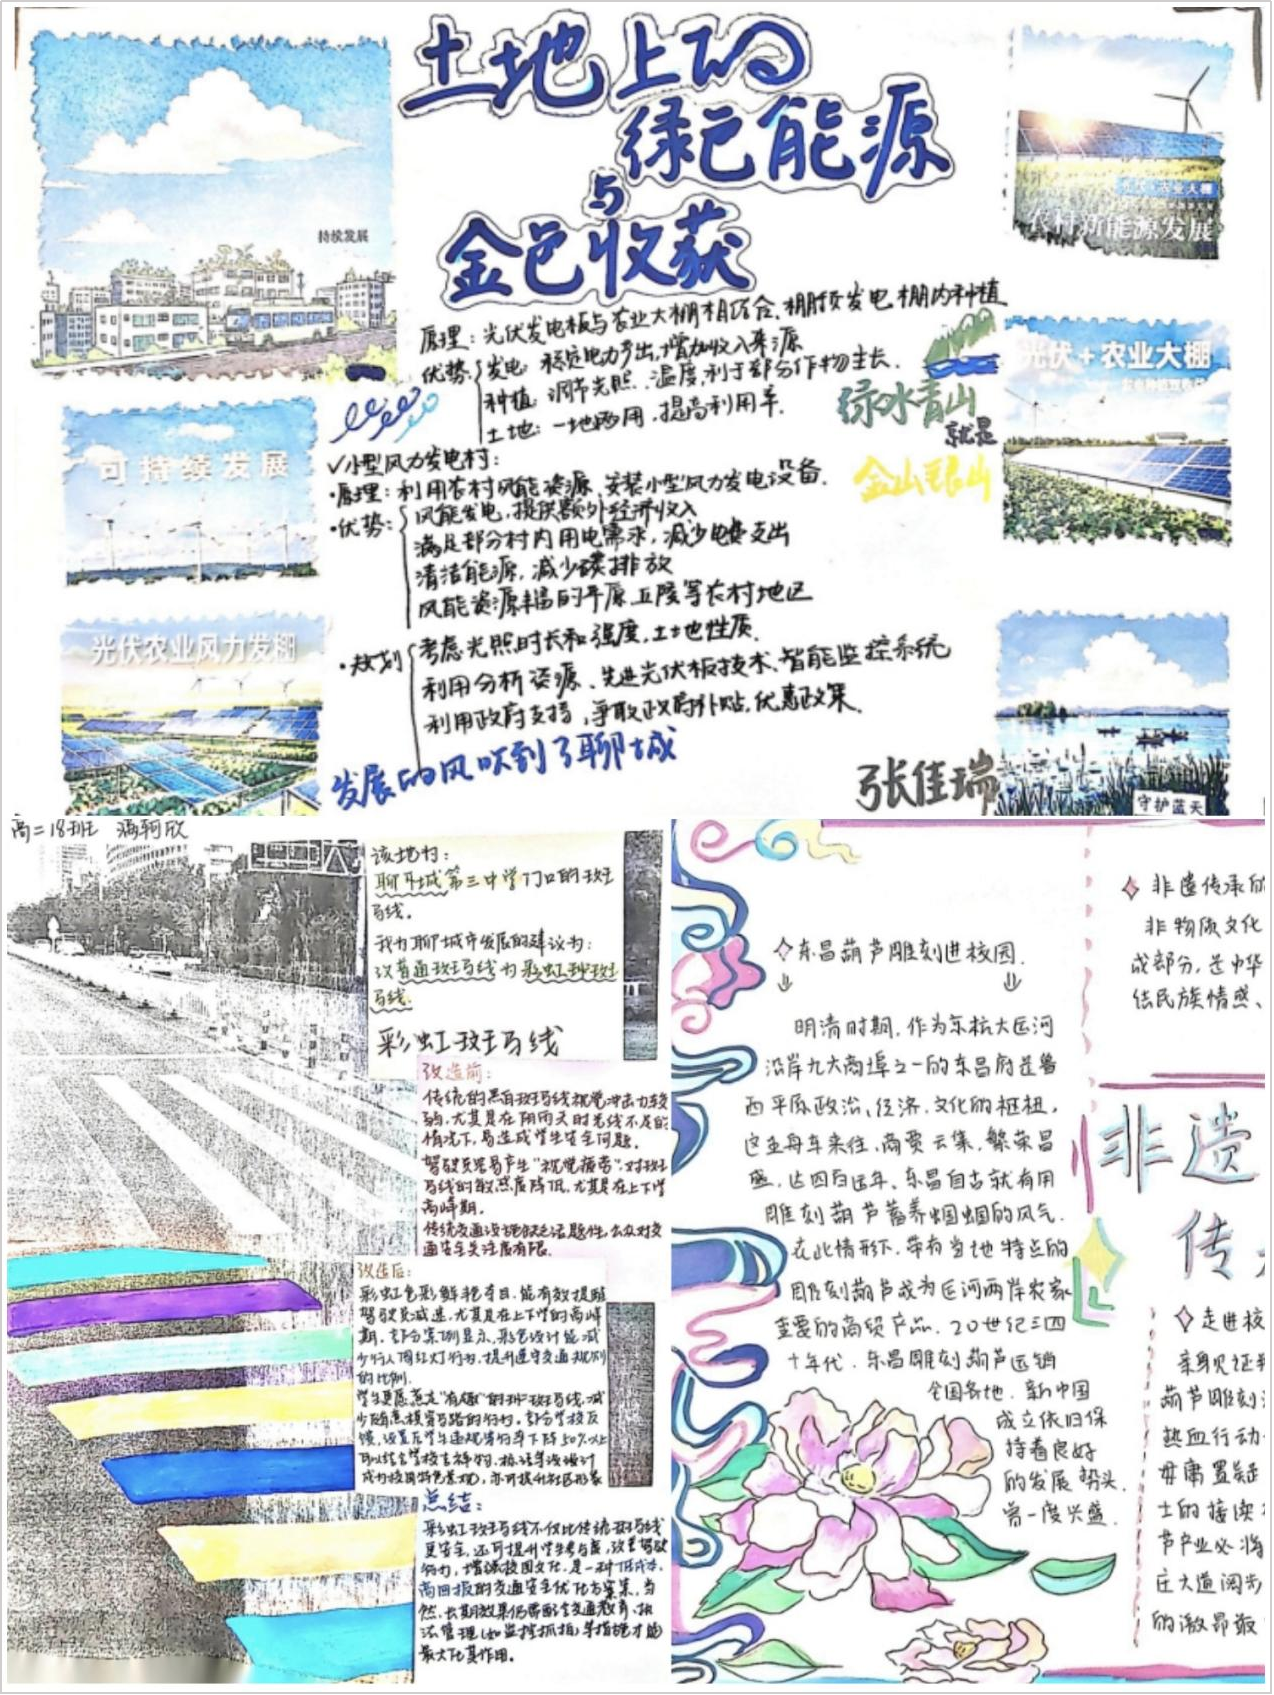 土地上的
绿色能源
与
金色收获
持续发展
农村新能源发展
原理：光伏发电板与农业大棚相结合，棚顶发电棚内种植
优势：发电：稳定电力产出，增加收入来源
种植：调节光照、温度，利于部分作物生长。
土地：一地两用，提高利用率.
光伏+农业大棚
绿水青山
就是
金山银山
可持续发展
✓小型风力发电村：
·原理：利用农村风能资源，安装小型风力发电设备.
·优势：风能发电，提供额外经济收入
满足部分村内用电需求，减少电费支出
清洁能源，减少碳排放
风能资源丰富的平原、丘陵等农村地区
光伏农业风力发棚
·规划 考虑光照时长和强度，土地性质.
利用分析资源、先进光伏板技术、智能监控系统
利用政府支持，争取政府补贴，优惠政策.
发展的风吹到了聊城
张佳瑞
守护蓝天
高二18班 满轲欣
该地为：
聊城第三中学门口的斑
马线。
我为聊城市发展的建议为：
改普通斑马线为彩虹斑
马线.
彩虹斑马线
改造前：
传统的黑白斑马线视觉冲击力较
弱，尤其是在阴雨天时光线不足的
情况下，易造成学生安全问题.
驾驶员容易产生"视觉疲劳"，对斑
马线的敏感度降低，尤其是在上下学
高峰期.
传统交通设施缺乏话题性，公众对交
通安全关注度有限.
改造后：
彩虹色彩鲜艳夺目，能有效提醒
驾驶员减速，尤其是在上下学的高峰
期，部分案例显示，彩色设计能减
少行人闯红灯行为，提升遵守交通规则
的比例.
学生更愿意走"有趣"的斑马线，减
少随意横穿马路的行为，部分学校反
馈，设置后学生违规率下降50%以上
可以结合学校吉祥物、标语等设计
成为校园特色景观，亦可提升社区形象
总结：
彩虹斑马线不仅比传统斑马线
更安全，还可提升学生参与度，改善驾驶
行为，增强校园文化，是一种低成本、
高回报的交通安全优化方案，当
然，长期效果仍需配合交通教育、执
法管理(如监控抓拍)等措施才能
最大化其作用。
东昌葫芦雕刻进校园.
明清时期，作为京杭大运河
沿岸九大商埠之一的东昌府是鲁
西平原政治、经济、文化的枢纽，
这里舟车来往，商贾云集，繁荣昌
盛，达四百余年，东昌自古就有用
雕刻葫芦蓄养蝈蝈的风气.
在此情形下，带有当地特点的
雕刻葫芦成为运河两岸农家
重要的商贸产品，20世纪三四
十年代，东昌雕刻葫芦远销
全国各地，新中国
成立依旧保
持着良好
的发展势头，
曾一度兴盛.
非遗传承的
非物质文化
成部分，是中华
结民族情感、
非遗
传
走进校
亲身见证
葫芦雕刻
热血行动
毋庸置疑
士的接续
芦产业必将
庄大道阔步
的激昂最